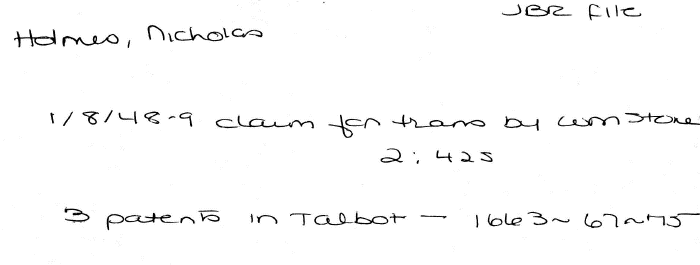 JBR file
Holmes, Nicholas
1/8/48-9 claim for trans by Wm Stone
2:425
3 patents in Talbot - 1663~67~75